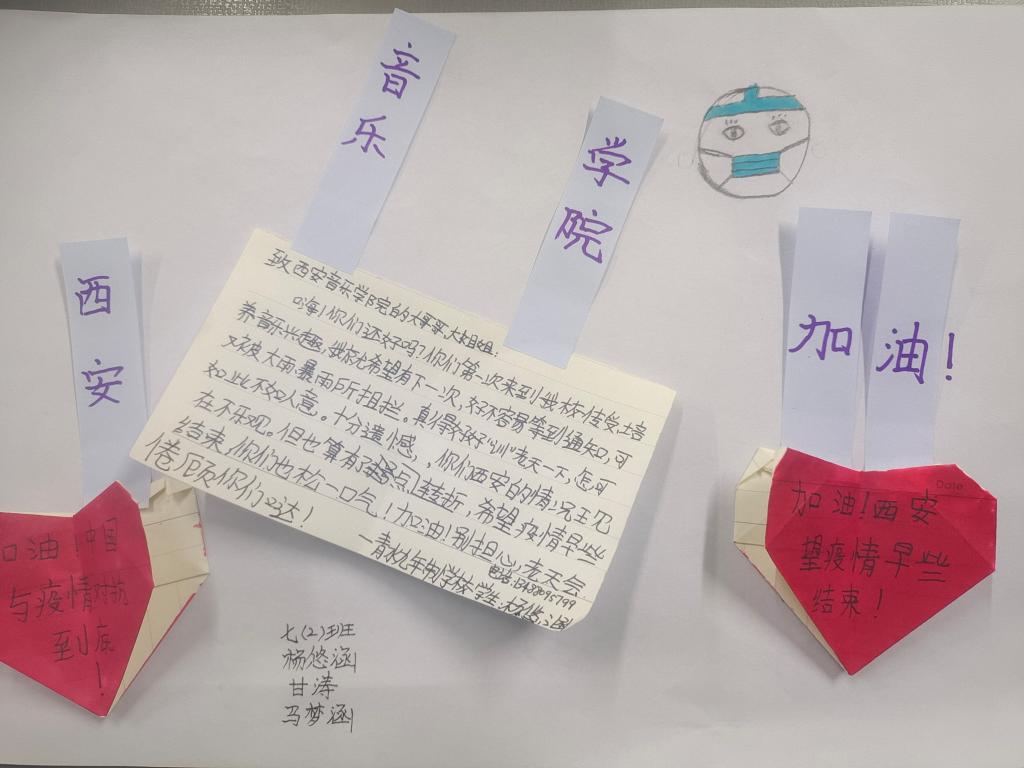 西安
音乐
学院
加油！
致西安音乐学院的大哥哥大姐姐：
嗨！你们还好吗？你们第一次来到我校传受培
养音乐兴趣，我充满希望有下一次，好不容易等到通知，可
又被大雨暴雨所阻拦。真得好好"训"老天一下，怎可
如此不如人意。十分遗憾，你们西安的情况至现
在不乐观。但也算有了点转折，希望疫情早些
结束，你们也松一口气！加油！别担心，老天会
倦顾你们哒！
一青少年的学校学生
加油！中国
与疫情对抗
到底
！
加油！西安
望疫情早些
结束！
Date
七(2)班
杨悠涵
甘涛
马梦涵